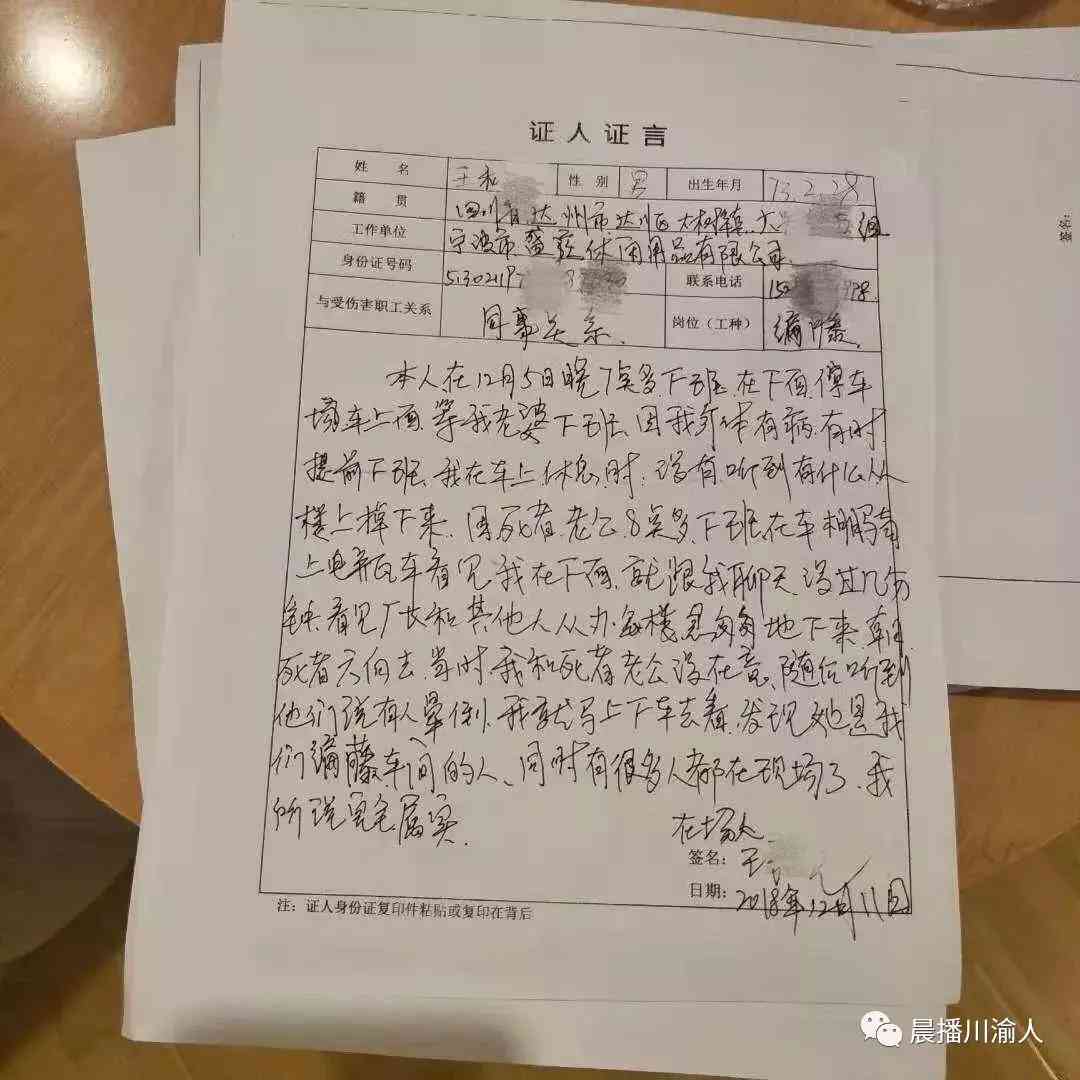 证人证言
姓 名 王和 性 别 男 出生年月 73.2.28
籍 贯 四川省达州市达川区大树镇 组
工作单位 宁波市 休闲用品有限公司
身份证号码 513021197 联系电话 15 98
与受伤害职工关系 同事关系. 岗位（工种） 编藤
本人在12月5日晚7点多下班.在下面停车
场车上面.等我老婆下班.因我身体有病.有时
提前下班.我在车上休息时.没有听到有什么从
楼上掉下来.因死者老公8点多下班.在车棚骑
上电瓶车看见我在下面.就跟我聊天.没过几分
钟.看见厂长和其他人从办公楼急匆匆地下来.朝
死者方向去.当时.我和死者老公没在意.随后听到
他们说有人晕倒.我就马上下车去看.发现她是我
们编藤车间的人、同时有很多人都在现场了.我
所说完全属实.
在场人
签名：王
日期：2018年12月11日
注：证人身份证复印件粘贴或复印在背后
晨播川渝人